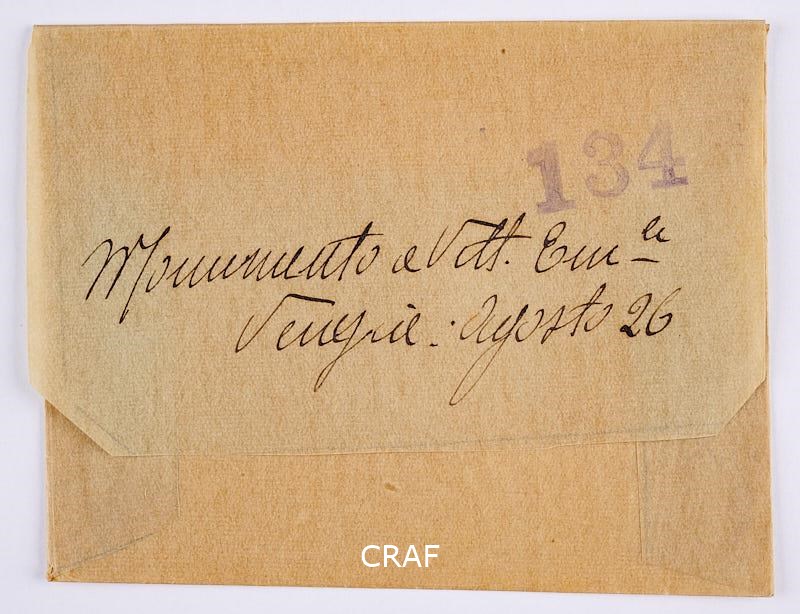 134
Monumento a Vitt. Em.le
Venezia. Agosto 26
CRAF